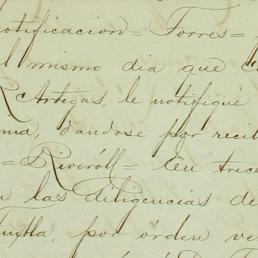 otificacion = Torres =
l mismo dia que
R Artigas, le notifiqué
dandose por recib
= Riveroll = En trece
las diligencias de
uixtla, por orden ve